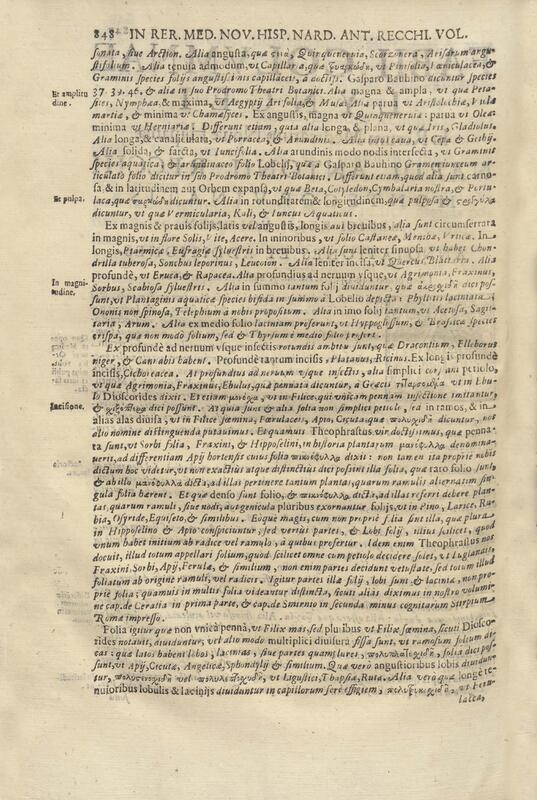 848 IN RER. MED. NOV. HISP. NARD. ANT. RECCHI. VOL.
sonata, siue Arction. Alia angusta, quæ Quinqueneruia, Scorzonera, Arisarum angu-
stifolium. Alia tenuia admodum, vt Capillaria, vt Pinifolia, &
Graminis species folijs angustissimis capillaceis, à doctiss. Gasparo Bauhino dicuntur species
37. 39. 46. & alia in suo Prodromo Theatri Botanici. Alia magna & ampla, vt quæ Peta-
Et amplitu
dine.
sites, Nymphæa, & maxima, vt Aegyptij Ari folia, & Musæ. Alia parua vt Aristolochiæ, Viola
martiæ, & minima vt Chamæsyces. Ex angustis, magna vt Quinqueneruia: parua vt Oleæ
minima vt Herniariæ. Differunt etiam, quòd alia longa, & plana, vt quæ Iris, Gladiolus
Alia longa, & canaliculata, vt Porracea, & Arundini. Alia vt Cepa & Gethij.
Alia solida, & farcta, vt Iuncifolia. Alia arundinis modo nodis intersecta, vt Graminis
species aquatica, & arundinaceo folio Lobelij, quæ à Gasparo Bauhino Gramen iunceum ar-
ticulato folio dicitur in suo Prodromo Theatri Botanici. Differunt etiam, quòd alia sunt carno-
sa, & in latitudinem aut Orbem expansa, vt quæ Beta, Cotyledon, Cymbalaria nostra, & Portu-
Et pulpa.
laca, quæ dicuntur. Alia in rotunditatem & longitudinem, quæ pulposa &
dicuntur, vt quæ Vermicularia, Kali, & Iuncus Aquaticus.
Ex magnis & prauis folijs, latis vel angustis, longis aut breuibus, alia sunt circumserrata
in magnis, vt in flore Solis, Vite, Acere. In minoribus, vt folio Castaneæ, Menthæ, Vrticæ. In
longis, Ptarmicæ, Eufragiæ syluestris in breuibus. Alia sunt leniter sinuosa, vt habet Chon-
drilla tuberosa, Sonchus leporinus, Leucoion. Alia leniter incisa, vt Quercus, Blattaria. Alia
profundè, vt Eruca, & Rapacea. Alia profundius ad neruum vsque, vt Agrimonia, Fraxinus,
In magni-
tudine.
Sorbus, Scabiosa syluestris. Alia in summo tantum folij diuiduntur, quæ dici pos-
sunt, vt Plantaginis aquaticæ species bifida in summo à Lobelio depicta: Phyllitis laciniata:
Ononis non spinosa, Telephium à nobis propositum. Alia in imo folij tantum, vt Acetosa, Sagit-
taria, Arum. Alia ex medio folio laciniam proferunt, vt Hypoglossum, & Brassicæ species
crispa, quæ non modò folium, sed & Thyrsum è medio folio profert.
Ex profundè ad neruum vsque insectis rotundis ambitu sunt, quæ Dracontium, Elleborus
niger, & Cannabis habent. Profundè tantum incisis, Platanus, Ricinus. Ex longis profundè
incisis, Cichoreacea. At profundius ad neruum vsque insectis, alia simplici coherent petiolo,
vt quæ Agrimonia, Fraxinus, Ebulus, quæ pennata dicuntur, à Græcis vt in Ebu-
lo Dioscorides dixit. Et etiam vt in Filice, qui vnicam pennam insectione imitantur,
Incisione.
& dici possunt. At quia sunt & alia folia non simplici petiolo, sed in ramos, & in
alias alas diuisa, vt in Filice fœmina, Fœrulaceis, Apio, Cicuta, quæ dicuntur, nos
alio nomine distinguenda putauimus. Et quamuis Theophrastus vir doctissimus, quæ penna-
ta sunt, vt Sorbi folia, Fraxini, & Hipposelini, in historia plantarum denomina-
uerit, ad differentiam Apij hortensis cuius folia dixit: non tam ita proprie nobis
dictum hoc videtur, vt non exactius atque distinctius dici possint illa folia, quæ raro folio sunt,
& ab illo dicta, ad illas pertinere tantum plantas, quarum ramulis alternatim sin-
gula folia hærent. Et quæ denso sunt folio, & dicta, ad illas referri debere plan-
tas, quarum ramuli, siue nodi, aut genicula pluribus exornantur folijs, vt in Pino, Larice, Ru-
bia, Osyride, Equiseto, & similibus. Eoque magis, cum non propriè folia sint illa, quæ plura
in Hipposelino & Apio conspiciuntur, sed veriùs partes, & Lobi folij, illius scilicet, quod
vnum habet initium ab radice vel ramulo, à quibus profertur. Idem enim Theophrastus nos
docuit, illud totum appellari folium, quod scilicet omne cum petiolo decidere solet, vt Iuglandis,
Fraxini, Sorbi, Apij, Ferulæ, & similium, non enim partes decidunt vetustate, sed totum illud
foliatum ab origine ramuli, vel radicis. Igitur partes illæ folij, lobi sunt, & laciniæ, non pro-
priè folia; quamuis in multis folia videantur distincta, sicuti alias diximus in nostro volumi-
ne cap. de Ceratia in prima parte, & cap. de Smirnio in secunda minus cognitarum Stirpium
Romæ impresso.
Folia igitur quæ non vnica penna, vt Filix mas, sed pluribus vt Filix fœmina, sicuti Diosco-
rides notauit, diuiduntur, vel alio modo multiplici diuisura fissa sunt, vt ramosum folium di-
cas: quæ latos habent lobos, lacinias, siue partes quamplures, folia dici pos-
sunt, vt Apij, Cicutæ, Angelicæ, Sphondylij & similium. Quæ verò angustioribus lobis diuidun-
tur, vel vt Ligustici, Thapsiæ, Rutæ. Alia verò quæ longè te-
nuioribus lobulis & lacinijs diuiduntur in capillorum ferè effigiem, vt Feru-
lacea,